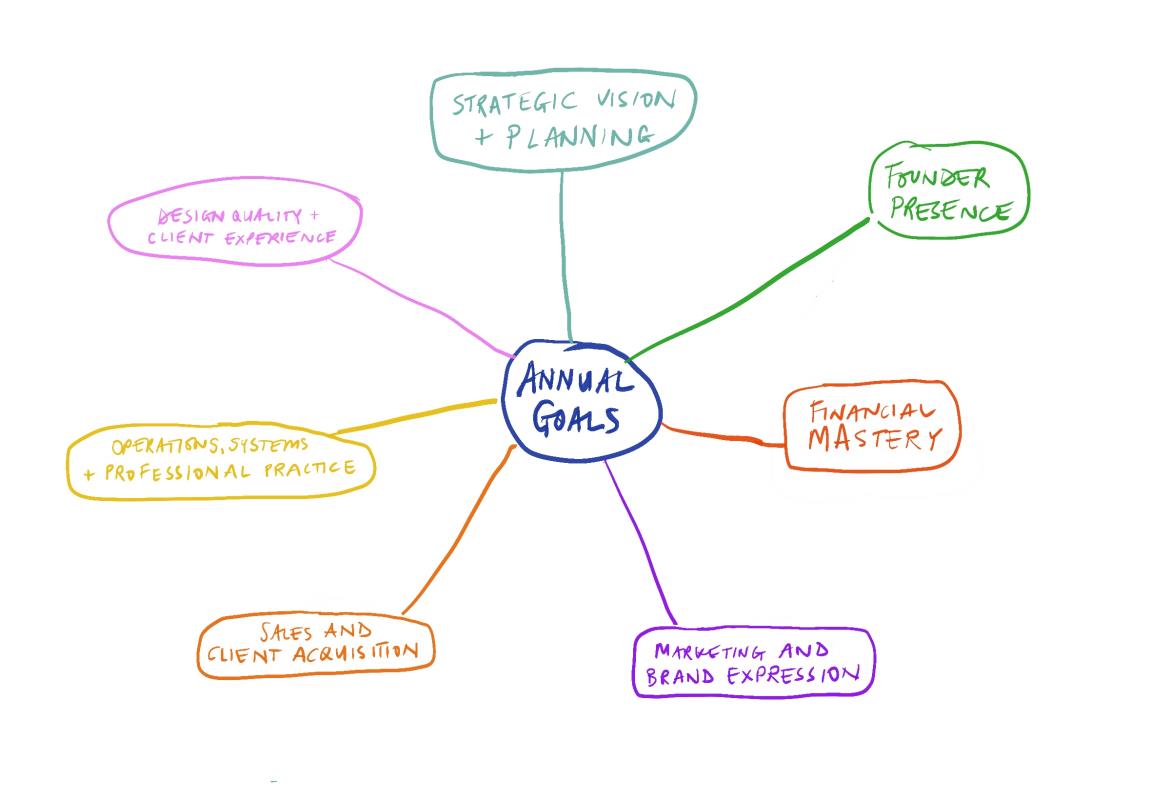 STRATEGIC VISION
+ PLANNING
FOUNDER
PRESENCE
DESIGN QUALITY +
CLIENT EXPERIENCE
ANNUAL
GOALS
FINANCIAL
MASTERY
OPERATIONS, SYSTEMS
+ PROFESSIONAL PRACTICE
SALES AND
CLIENT ACQUISITION
MARKETING AND
BRAND EXPRESSION